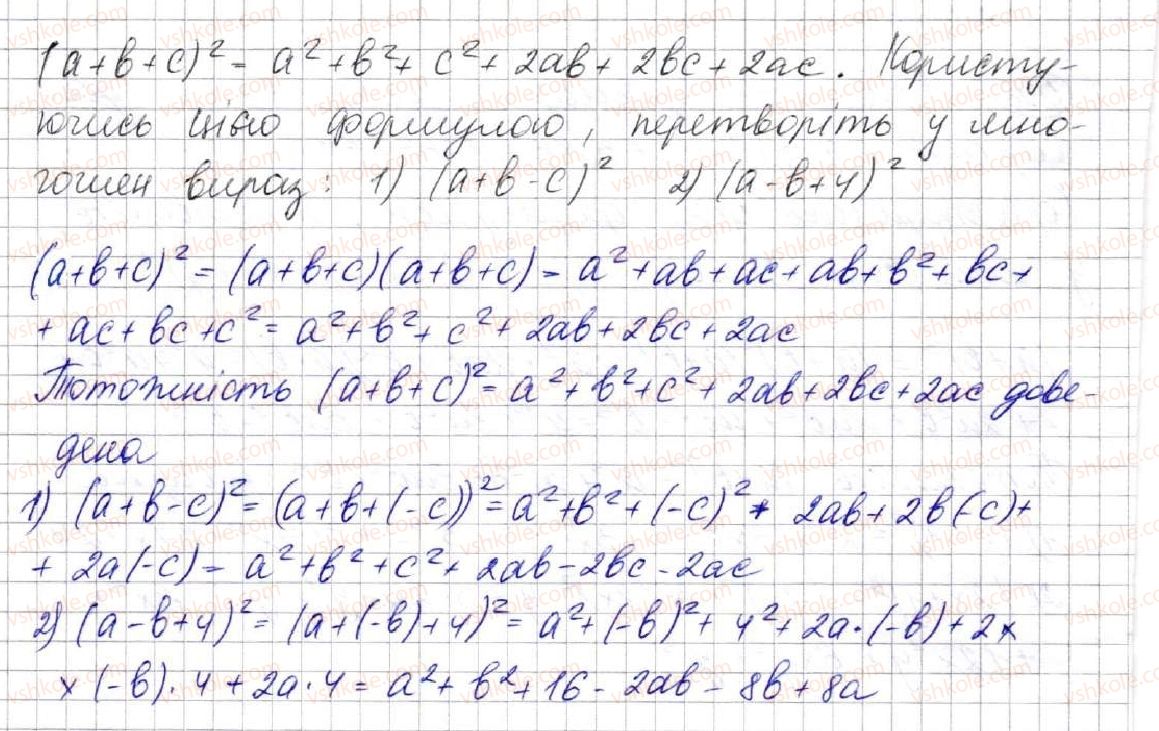 (a+b+c)² = a²+b²+c²+2ab+2bc+2ac. Користу-
ючись цією формулою, перетворіть у мно-
гочлен вираз: 1) (a+b-c)² 2) (a-b+4)²
(a+b+c)² = (a+b+c)(a+b+c) = a²+ab+ac+ab+b²+bc+
+ac+bc+c² = a²+b²+c²+2ab+2bc+2ac
Тотожність (a+b+c)² = a²+b²+c²+2ab+2bc+2ac дове-
дена
1) (a+b-c)² = (a+b+(-c))² = a²+b²+(-c)²+2ab+2b(-c)+
+2a(-c) = a²+b²+c²+2ab-2bc-2ac
2) (a-b+4)² = (a+(-b)+4)² = a²+(-b)²+4²+2a·(-b)+2×
×(-b)·4+2a·4 = a²+b²+16-2ab-8b+8a